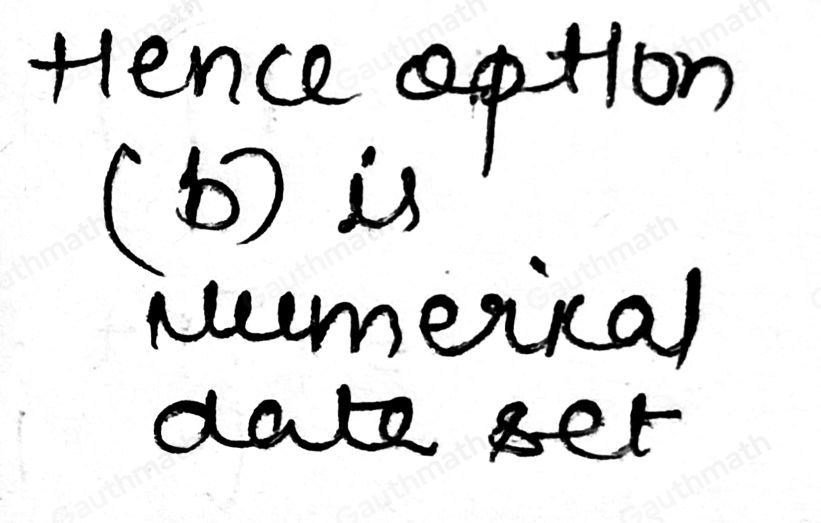 Hence option
(b) is
Numerical
data set